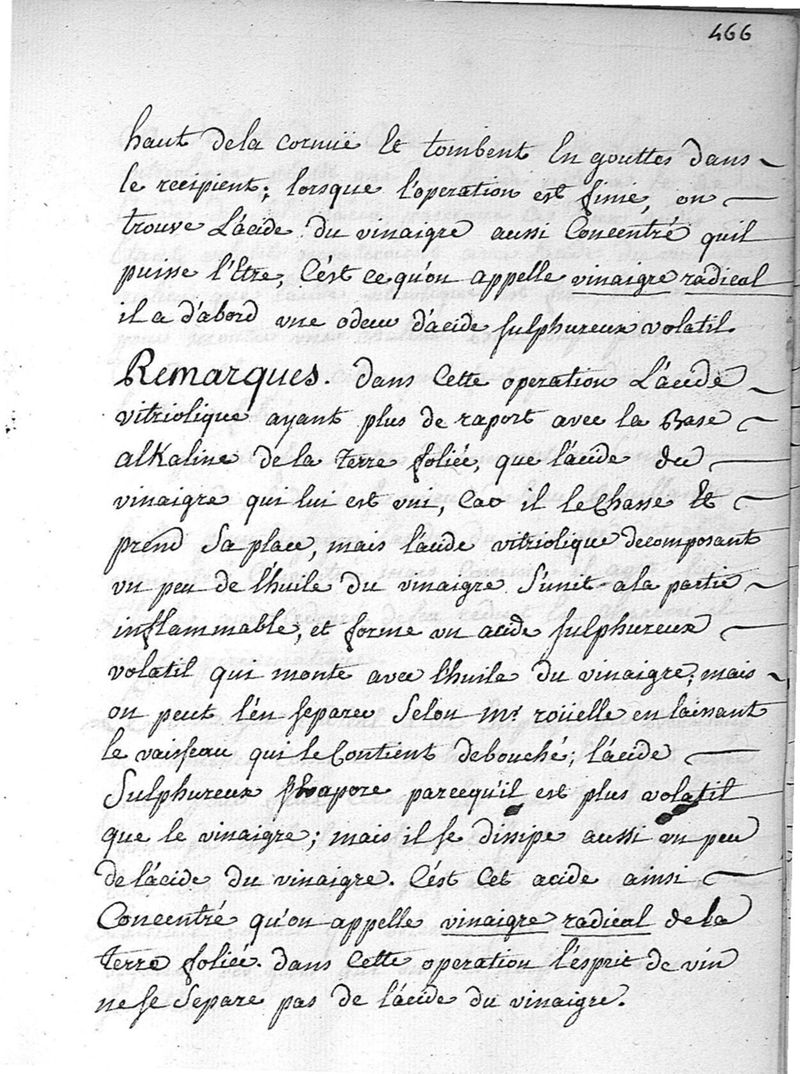 466
haut dela cornuë Et tombent En gouttes dans
le recipient; lorsque l'operation est finie, on
trouve L'acide du vinaigre aussi Concentré quil
puisse l'Etre, C'est ce qu'on appelle vinaigre radical
il a d'abord une odeur d'acide sulphureux volatil.
Remarques. dans Cette operation L'acide
vitriolique ayant plus de raport avec la Base
alkaline de la Terre foliée, que l'acide du
vinaigre qui lui est uni, Car il le Chasse Et
prend Sa place, mais l'acide vitriolique decomposant
un peu de l'huile du vinaigre S'unit a la partie
inflammable, et forme un acide sulphureux
volatil qui monte avec l'huile du vinaigre; mais
on peut l'en separer Selon mr. roüelle en laissant
le vaisseau qui le Contient debouché; l'acide
Sulphureux parcequ'il est plus volatil
que le vinaigre; mais il se dissipe aussi un peu
de l'acide du vinaigre. C'est Cet acide ainsi
Concentré qu'on appelle vinaigre radical de la
Terre foliée. dans Cette operation l'esprit de vin
ne se Separe pas de l'acide du vinaigre.